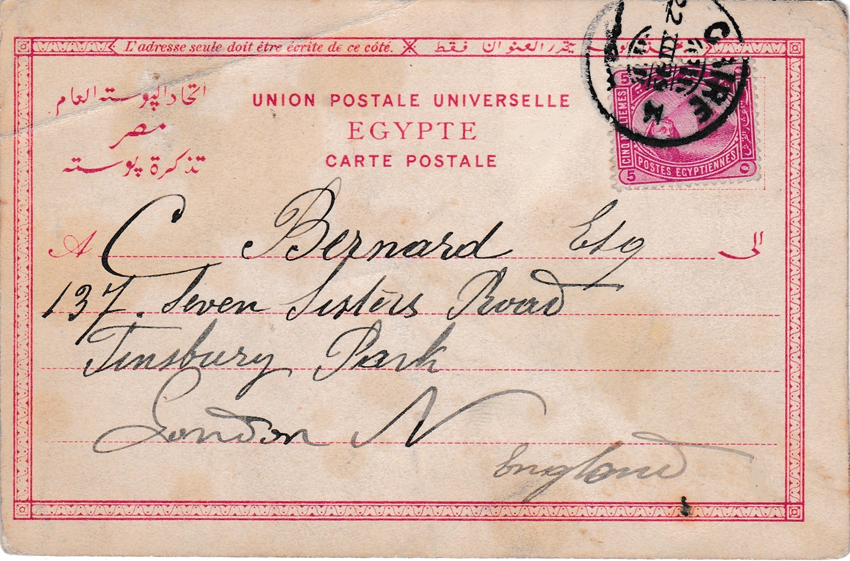 L'adresse seule doit être écrite de ce côté. فقط
اتحاد البوسته العام
مصر
تذكرة بوسته
UNION POSTALE UNIVERSELLE
EGYPTE
CARTE POSTALE
CAIRE
22 XII
POSTES EGYPTIENNES
5
A C Bernard Esq الى
137. Seven Sisters Road
Finsbury Park
London N
England